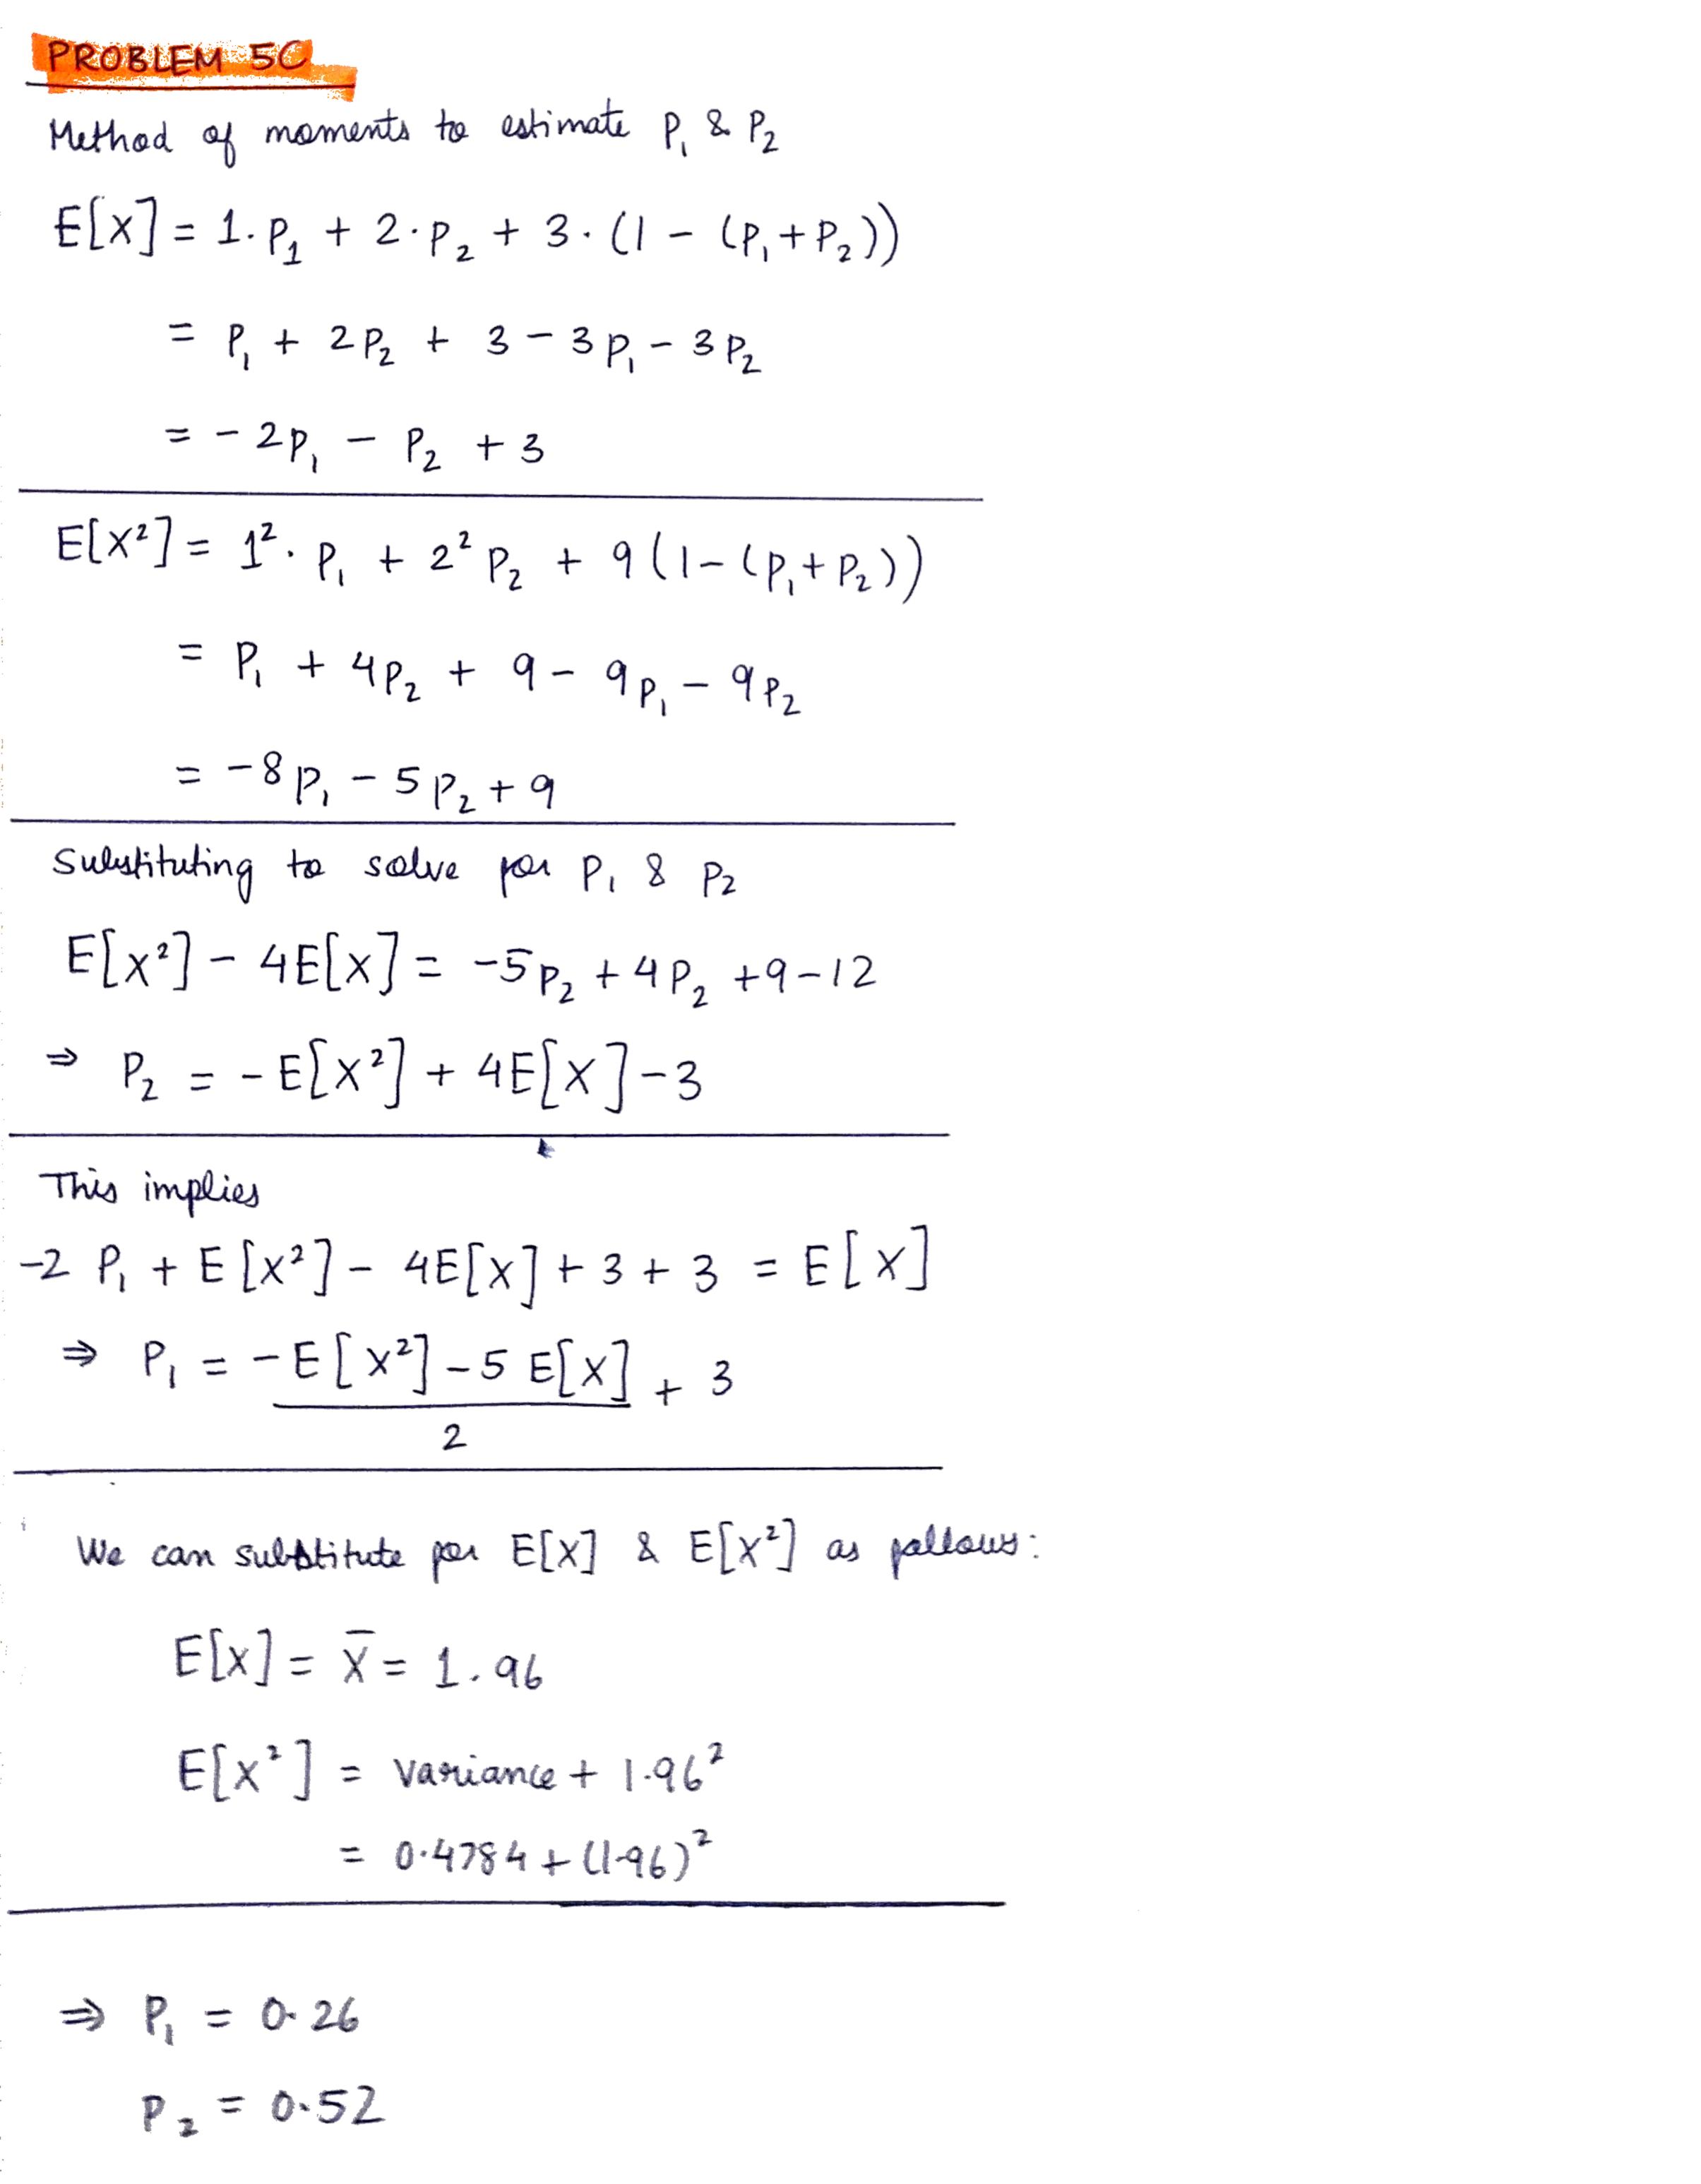 PROBLEM 5C
Method of moments to estimate P₁ & P₂
E[X] = 1·P₁ + 2·P₂ + 3·(1 - (P₁+P₂))
= P₁ + 2P₂ + 3 - 3P₁ - 3P₂
= -2P₁ - P₂ + 3
E[X²] = 1²·P₁ + 2²P₂ + 9(1-(P₁+P₂))
= P₁ + 4P₂ + 9 - 9P₁ - 9P₂
= -8P₁ - 5P₂ + 9
Substituting to solve for P₁ & P₂
E[X²] - 4E[X] = -5P₂ + 4P₂ + 9 - 12
⇒ P₂ = -E[X²] + 4E[X] - 3
This implies
-2P₁ + E[X²] - 4E[X] + 3 + 3 = E[X]
⇒ P₁ = (-E[X²] - 5E[X])/2 + 3
We can substitute for E[X] & E[X²] as follows:
E[X] = X̄ = 1.96
E[X²] = variance + 1.96²
= 0.4784 + (1.96)²
⇒ P₁ = 0.26
P₂ = 0.52